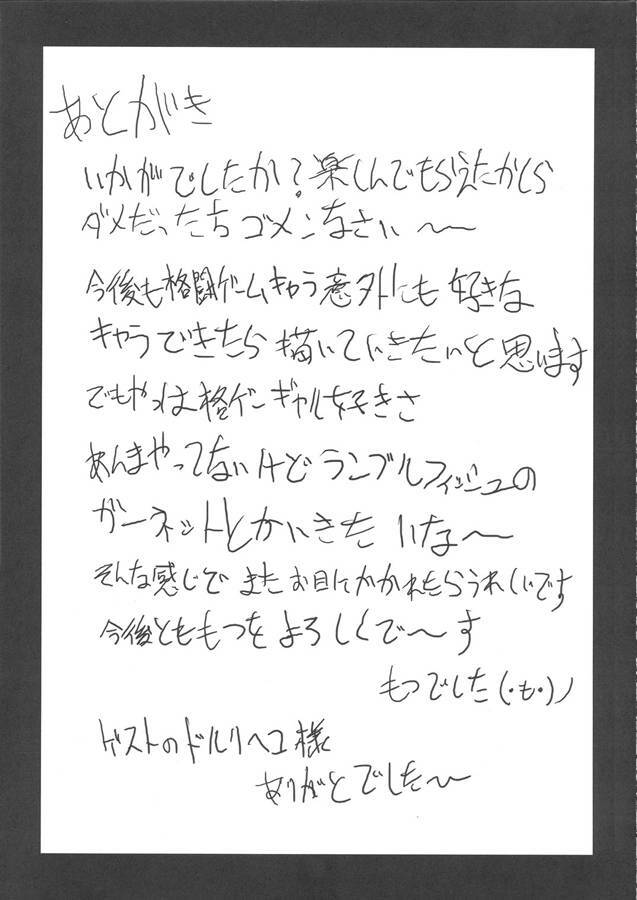 あとがき
いかがでしたか?楽しんでもらえたかしら
ダメだったらゴメンなさい〜
今後も格闘ゲームキャラ意外にも好きな
キャラできたら描いていきたいと思います
でもやっぱ格ゲーギャル好きさ
あんまやってないけどランブルフィッシュの
ガーネットとかいきたいな〜
そんな感じでまたお目にかかれたらうれしいです
今後とももつをよろしくで〜す
もつでした(・も・)ノ
ゲストのドルリヘコ様
ありがとでした〜